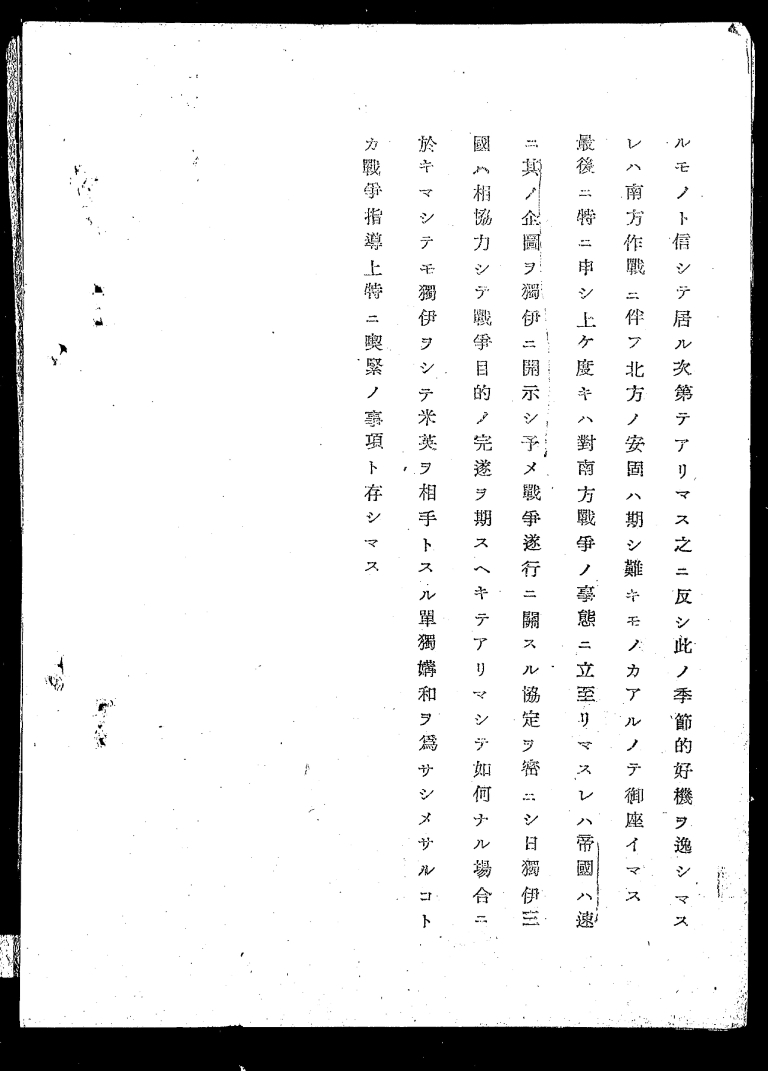 ルモノト信シテ居ル次第テアリマス之ニ反シ此ノ季節的好機ヲ逸シマス
レハ南方作戰ニ伴フ北方ノ安固ハ期シ難キモノカアルノテ御座イマス
最後ニ特ニ申シ上ケ度キハ對南方戰爭ノ事態ニ立至リマスレハ帝國ハ速
ニ其ノ企圖ヲ獨伊ニ開示シ予メ戰爭遂行ニ關スル協定ヲ密ニシ日獨伊三
國ハ相協力シテ戰爭目的ノ完遂ヲ期スヘキテアリマシテ如何ナル場合ニ
於キマシテモ獨伊ヲシテ米英ヲ相手トスル單獨媾和ヲ爲サシメサルコト
カ戰爭指導上特ニ喫緊ノ事項ト存シマス